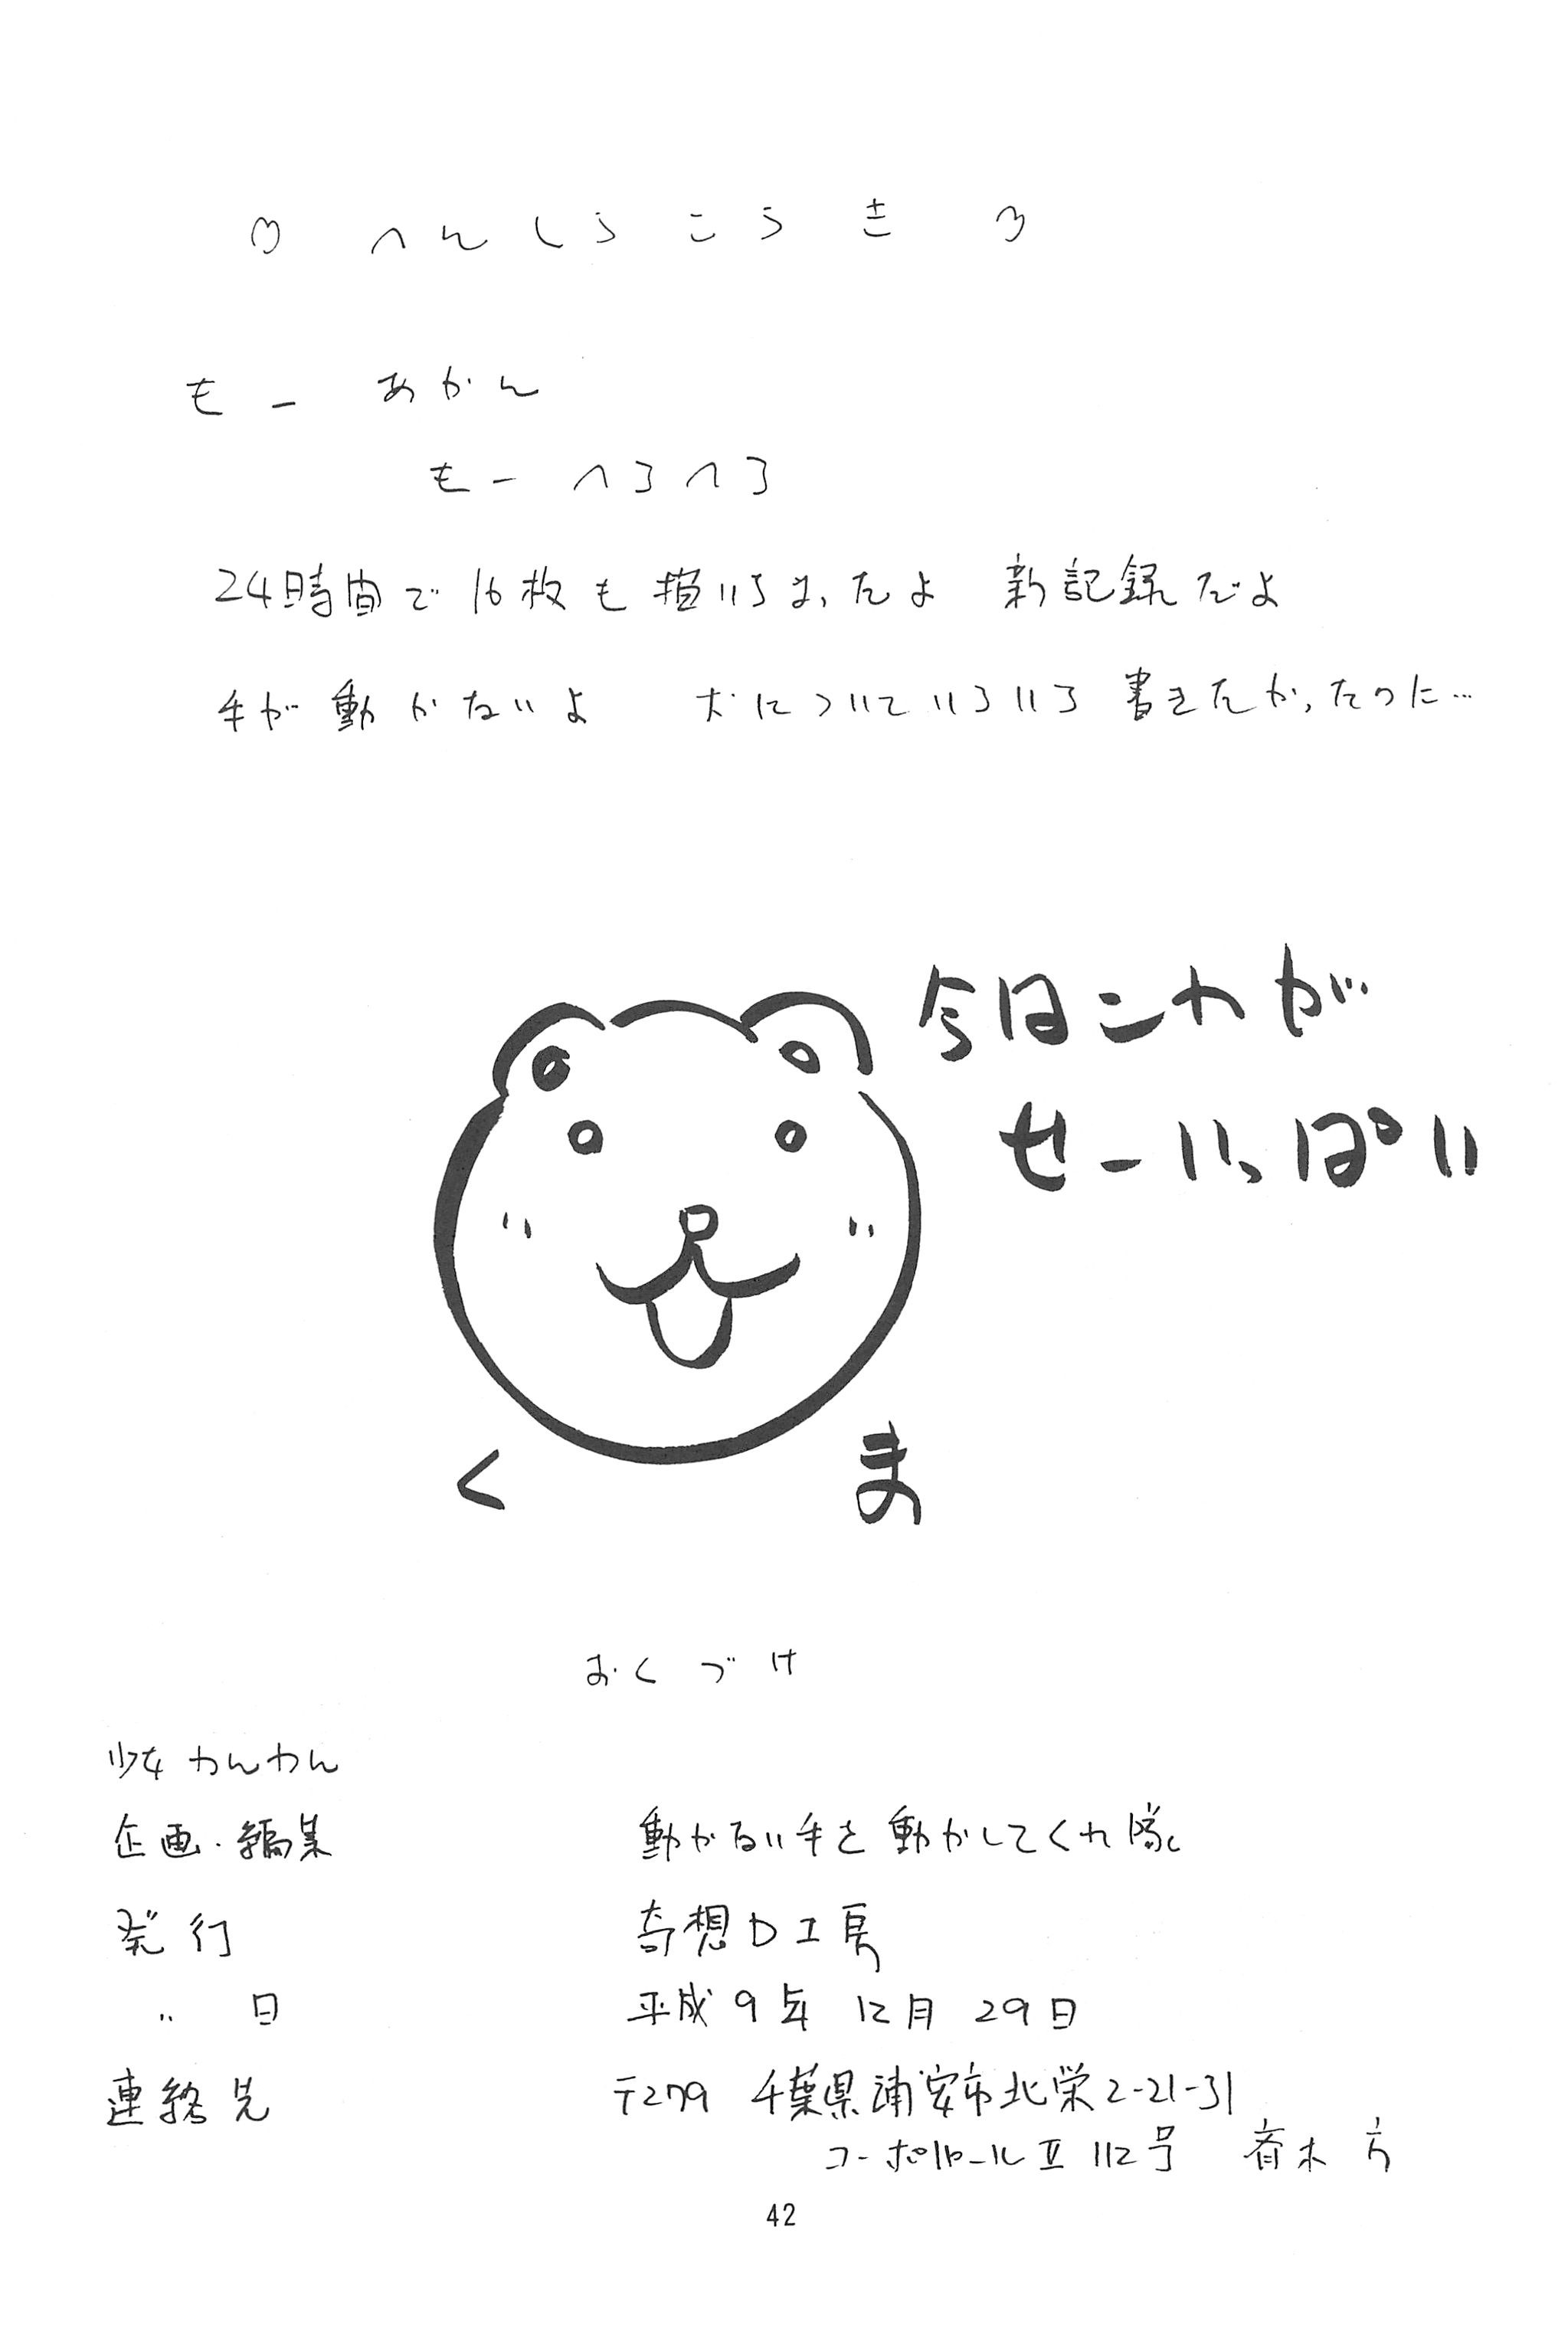 へんしうこうき
もー あかん
もー へろへろ
24時間で16枚も描いちまったよ 新記録だよ
手が動かないよ 犬についていろいろ書きたかったのに…
今はこれが
せーいっぱい
くま
おくづけ
少女わんわん
企画・編集 動かない手を動かしてくれ隊
発行 奇想D工房
〃 日 平成9年 12月 29日
連絡先 〒279 千葉県浦安市北栄2-21-31
コーポ ールⅡ 112号 斉木 方
42